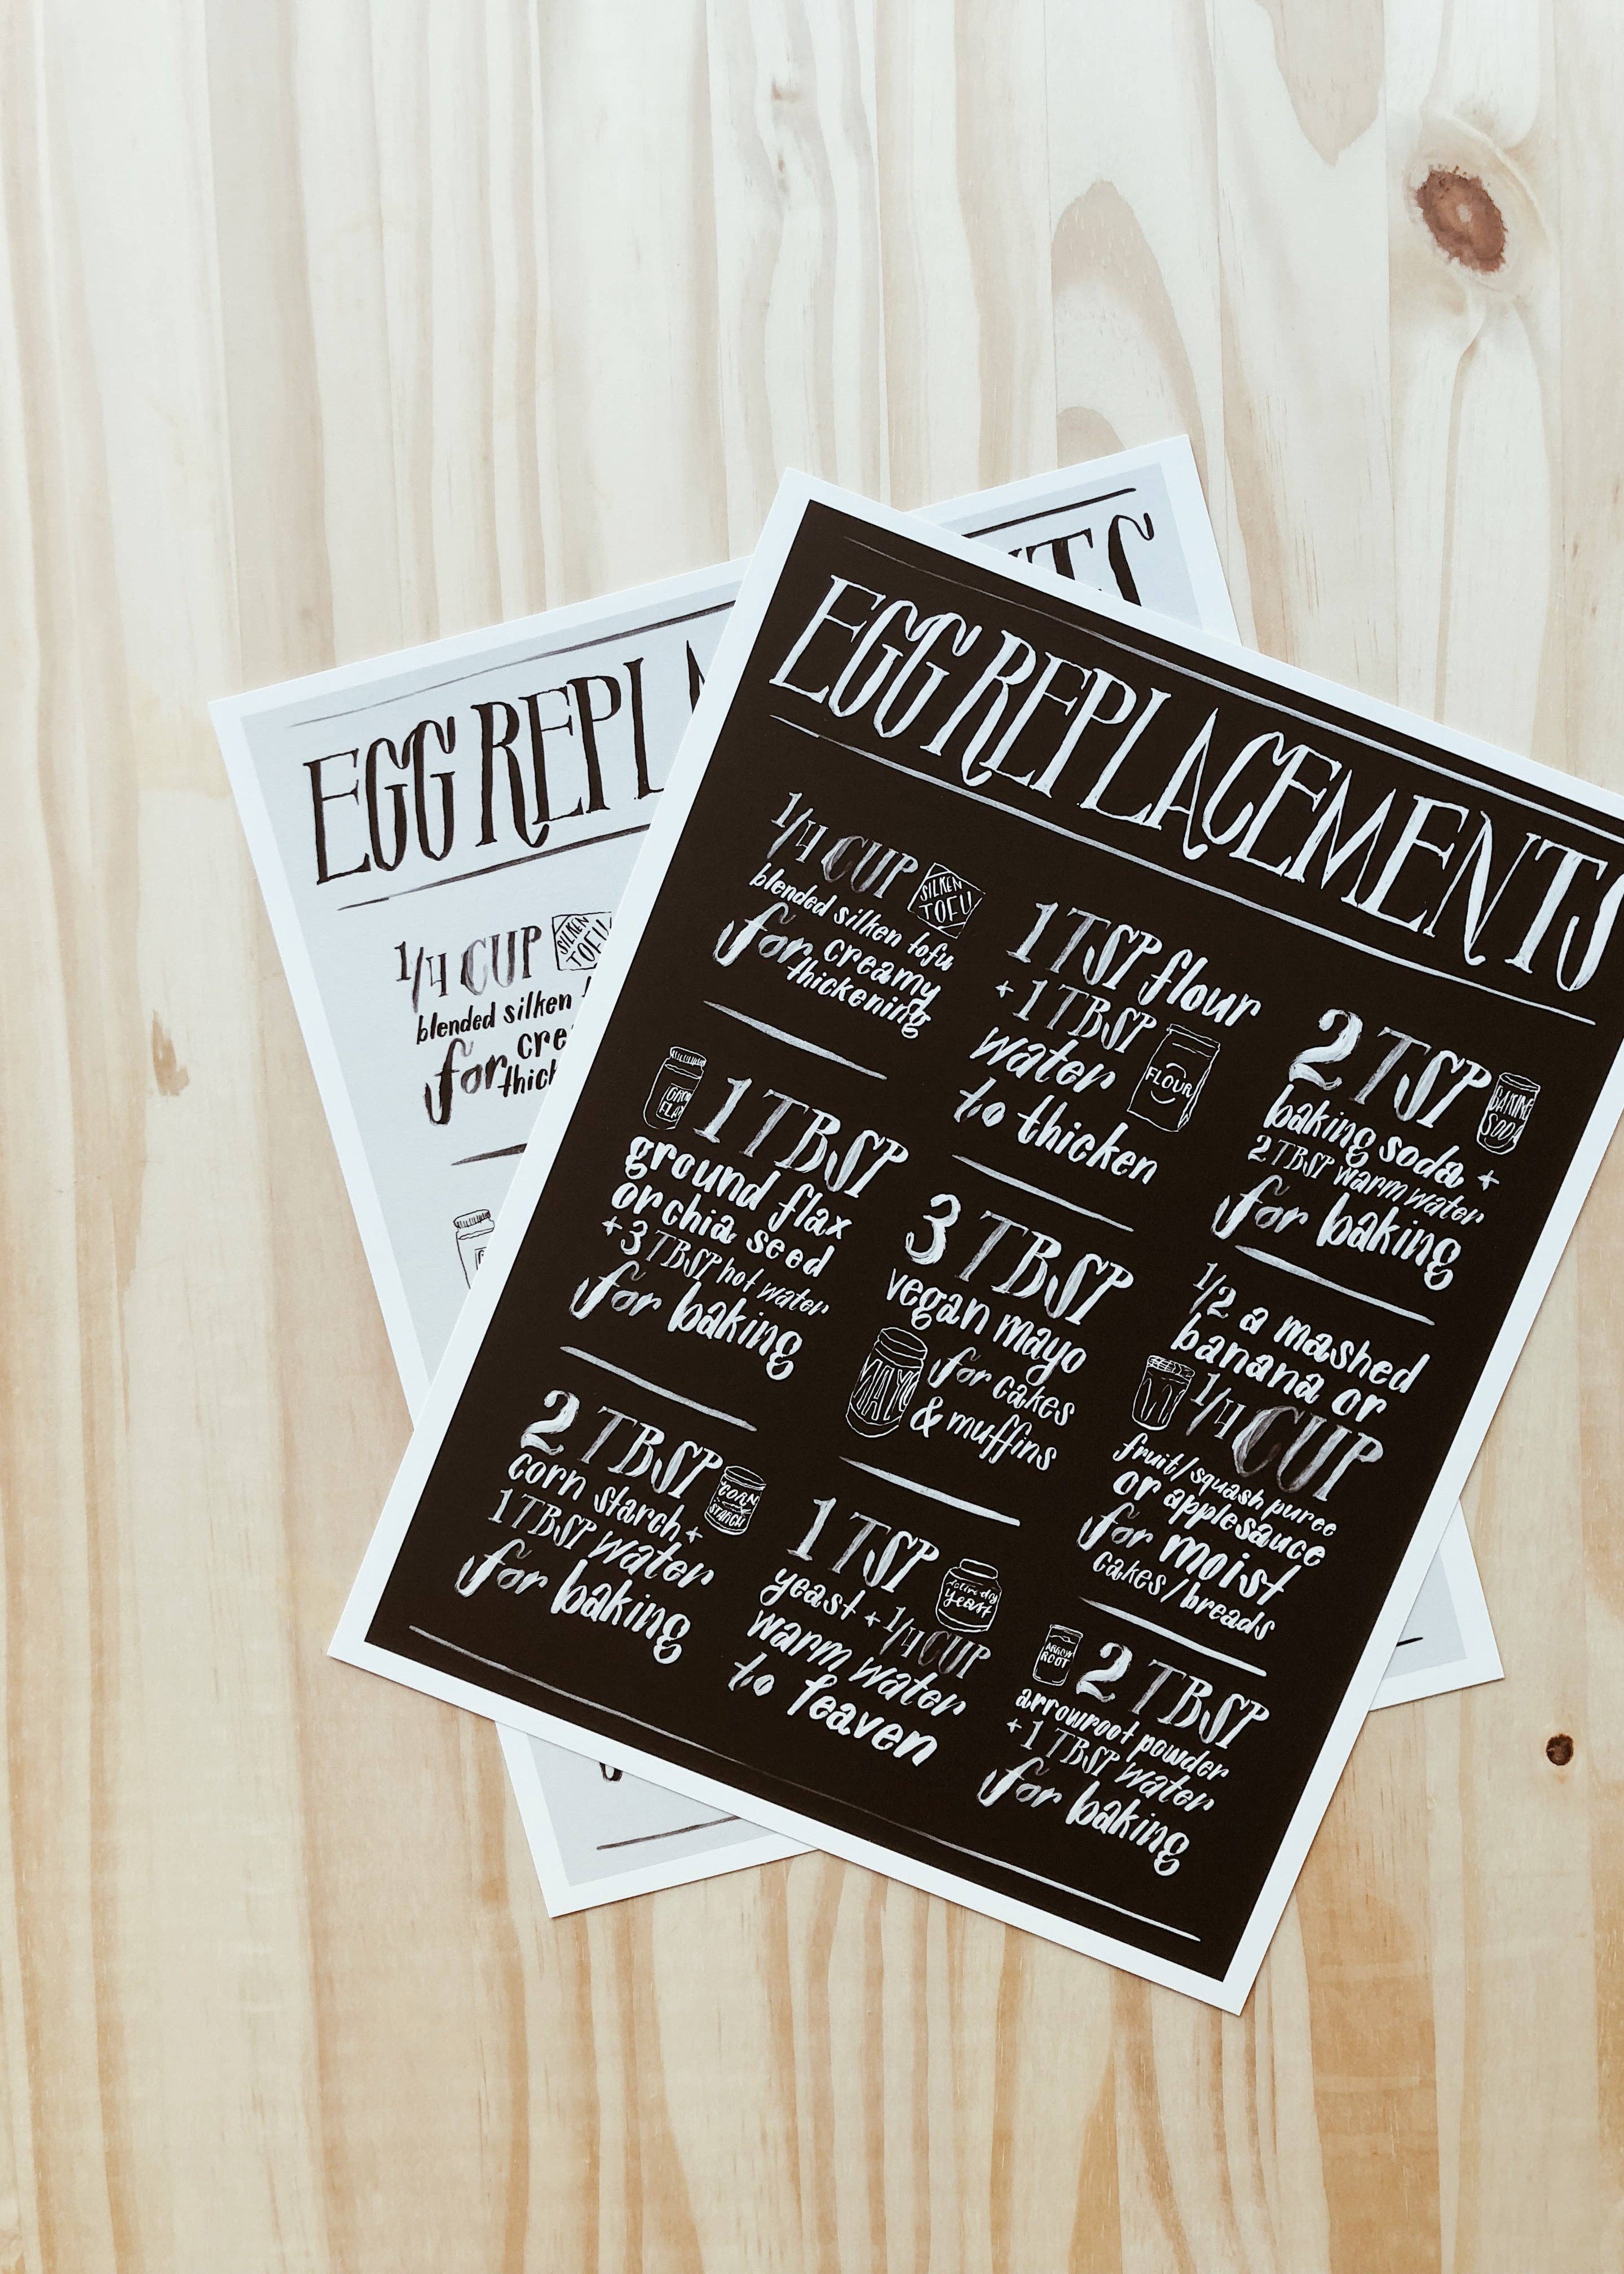 EGG REPLACEMENTS
1/4 CUP
SILKEN
TOFU
blended silken tofu
for creamy
thickening
1 TBSP
ground flax
or chia seed
+3 TBSP hot water
for baking
2 TBSP
CORN
STARCH
corn starch +
1 TBSP water
for baking
1 TSP flour
+ 1 TBSP
water
FLOUR
to thicken
3 TBSP
vegan mayo
MAYO
for cakes
& muffins
1 TSP
yeast + 1/4 CUP
yeast
warm water
to leaven
2 TSP
BAKING
SODA
baking soda +
2 TBSP warm water
for baking
1/2 a mashed
banana or
1/4 CUP
fruit/squash puree
or applesauce
for moist
cakes/breads
ARROW
ROOT
2 TBSP
arrowroot powder
+ 1 TBSP water
for baking
EGG REPL
1/4 CUP
SILKEN
TOFU
blended silken
for